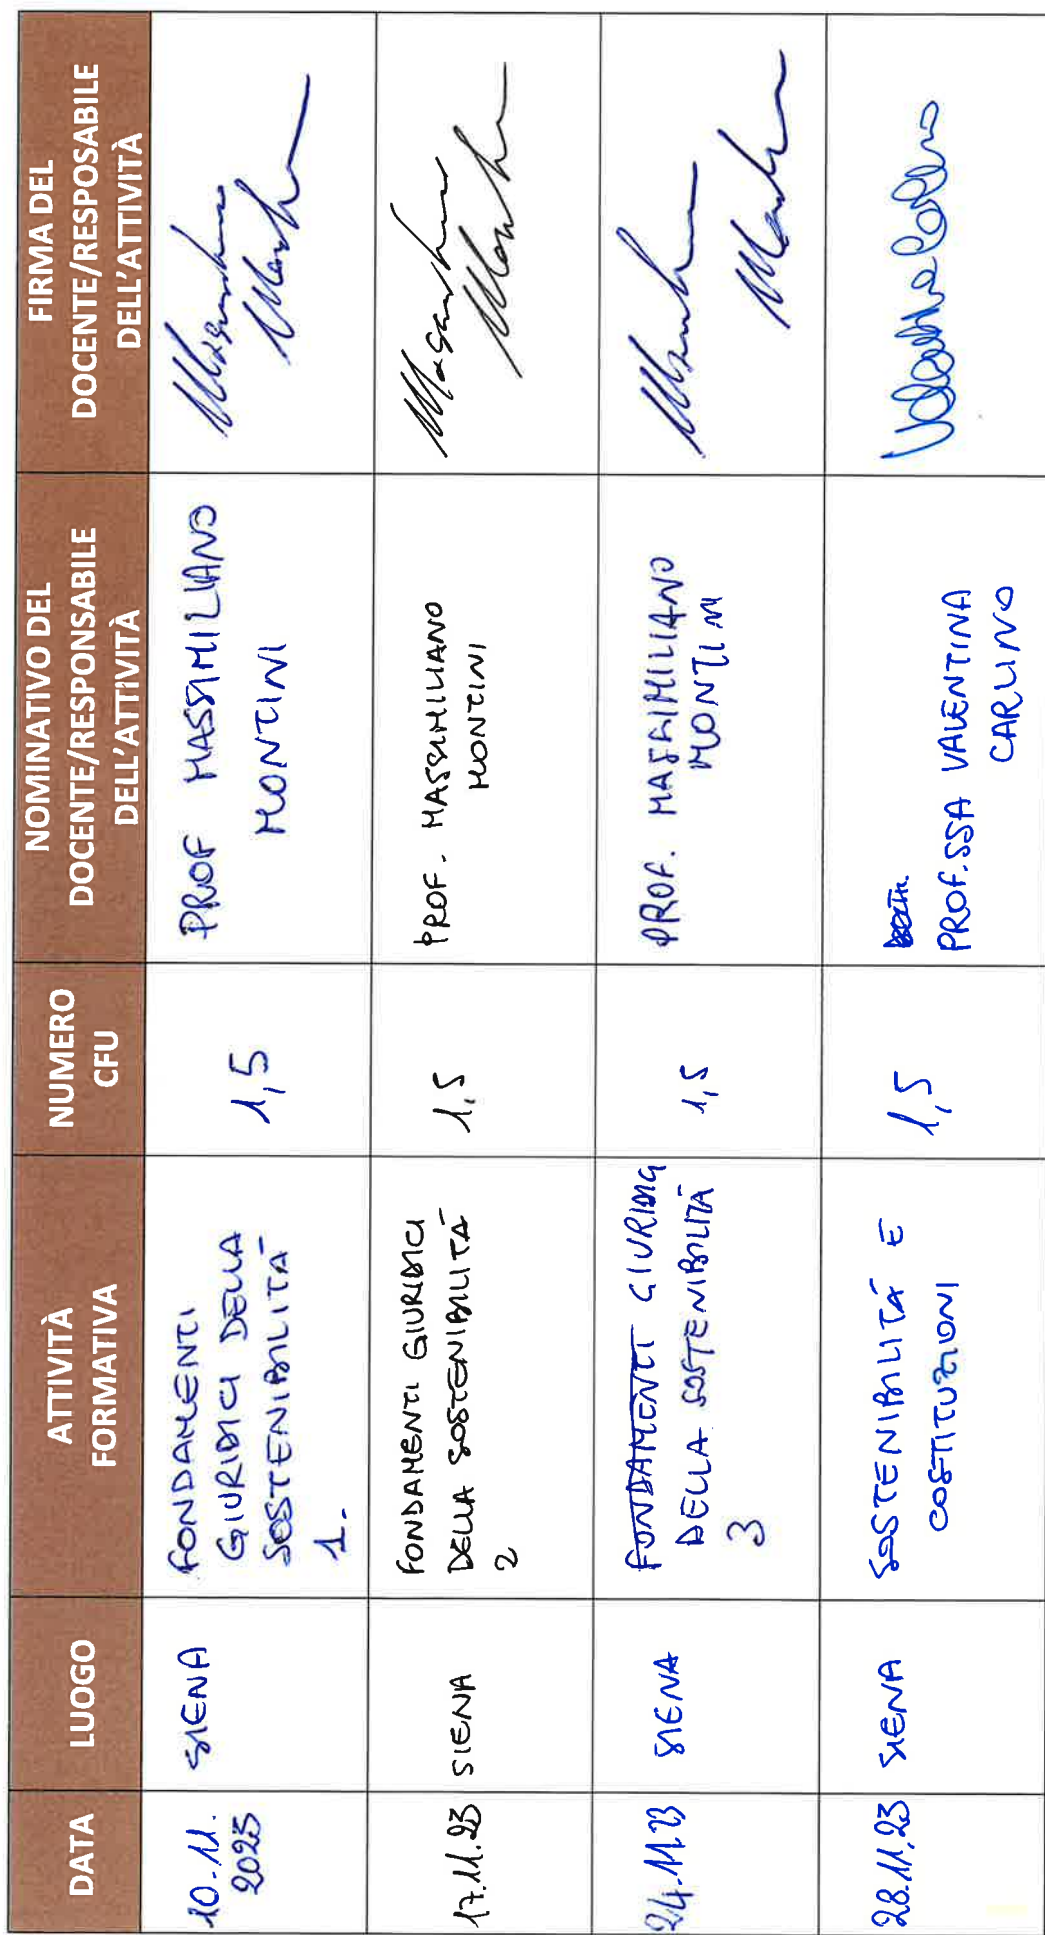 DATA
LUOGO
ATTIVITÀ
FORMATIVA
NUMERO
CFU
NOMINATIVO DEL
DOCENTE/RESPONSABILE
DELL'ATTIVITÀ
FIRMA DEL
DOCENTE/RESPOSABILE
DELL'ATTIVITÀ
10.11.
2023
SIENA
FONDAMENTI
GIURIDICI DELLA
SOSTENIBILITÀ
1.
1,5
PROF MASSIMILIANO
MONTINI
17.11.23
SIENA
FONDAMENTI GIURIDICI
DELLA SOSTENIBILITÀ
2
1,5
PROF. MASSIMILIANO
MONTINI
24.11.23
SIENA
FONDAMENTI GIURIDICI
DELLA SOSTENIBILITÀ
3
1,5
PROF. MASSIMILIANO
MONTINI
28.11.23
SIENA
SOSTENIBILITÀ E
COSTITUZIONI
1,5
PROF.SSA VALENTINA
CARLINO